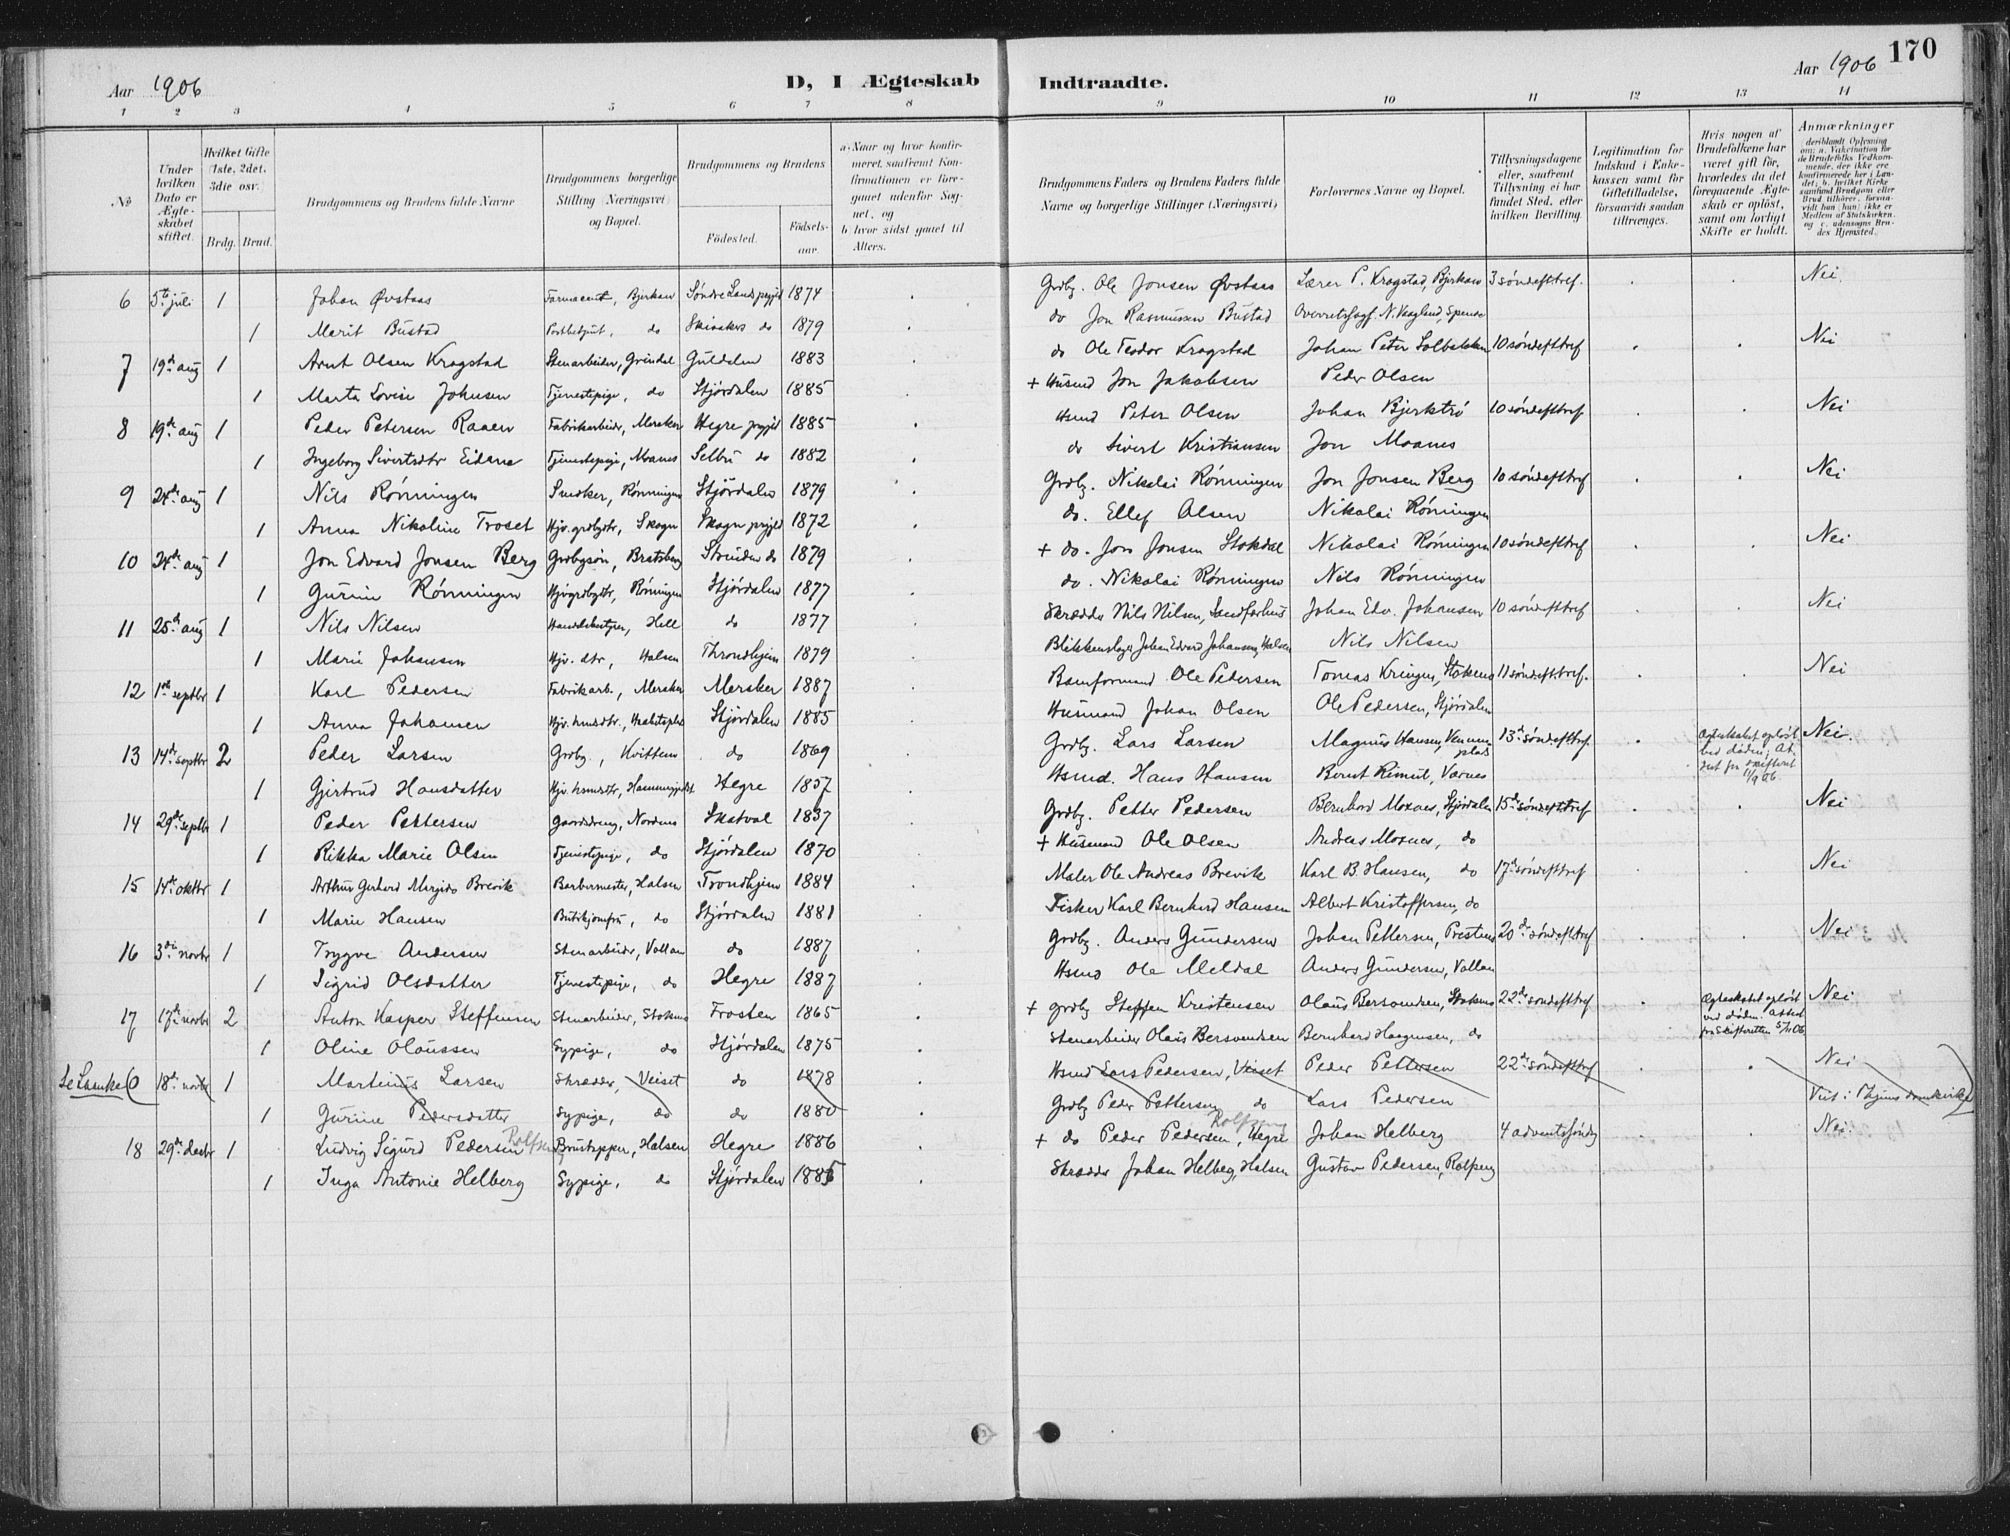 Aar 1906
D, I Ægteskab Indtraadte.
Aar 1906 170
1 2 3 4 5 6 7 8 9 10 11 12 13 14
No
Under hvilken Dato er Ægteskabet stiftet.
Hvilket Gifte (1ste, 2det, 3die osv.)
Brdg. Brud.
Brudgommens og Brudens fulde Navne
Brudgommens borgerlige Stilling (Næringsvei) og Bopæl.
Brudgommens og Brudens
Födested. Födsels-aar
a. Naar og hvor konfirmeret, saafremt Konfirmationen er foregaaet udenfor Sognet, og
b. hvor sidst gaaet til Alters.
Brudgommens Faders og Brudens Faders fulde Navne og borgerlige Stillinger (Næringsvei)
Forlovernes Navne og Bopæl.
Tillysningsdagene eller, saafremt Tillysning ei har fundet Sted, efter hvilken Bevilling.
Legitimation for Indskud i Enkekassen samt for Giftetilladelse, forsaavidt saadan tiltrænges.
Hvis nogen af Brudefolkene har været gift før, hvorledes da det foregaaende Ægteskab er opløst, samt om lovligt Skifte er holdt.
Anmærkninger
deriblandt Oplysning om: a. Vakcination for de Brudefolks Vedkommende, der ikke ere konfirmerede her i Landet; b. hvilket Kirkesamfund Brudgom eller Brud tilhører, forsaavidt han (hun) ikke er Medlem af Statskirken, og c. udensogns Brudes Hjemsted.
6 5te juli 1 Johan Øvstaas Farmaceut, Bjerkan Søndre Lands prgjld 1874 Grdbr. Ole Jonsen Øvstaas Lærer P. Kragstad, Bjerkan 3 søndefttref. Nei.
1 Marit Bustad Postbetjnt, do Skiaakers do 1879 do Jon Rasmussen Bustad Overretssagf. N. Vaagland,
7 19de aug 1 Arnt Olsen Kragstad Stenarbeider, Grindal Guldalen 1883 do Ole Teodor Kragstad Johan Peter Solbakken 10 søndefttref Nei
1 Marta Lovise Johnsen Tjenestepige, do Stjördalen 1885 + Husmd Jon Jakobsen Peder Olsen
8 19de aug 1 Peder Petersen Raaen Fabrikarbeider, Meraker Hegre prgjld 1885 Husmd Peter Olsen Johan Bjerktrö 10 søndefttref Nei
1 Ingeborg Sivertsdtr Eidane Tjenestepige, Moanes Selbu do 1882 do Sivert Kristiansen Jon Moanes
9 24de aug 1 Nils Rönningen Snedker, Rönningen Stjördalen 1879 Grdbr. Nikolai Rönningen Jon Jonsen Berg 10 søndefttref Nei
1 Anna Nikoline Troset Hjv. grdbrdtr, Skogn Skogn prgjld 1872 do. Ellef Olsen Nikolai Rönningen
10 24de aug 1 Jon Edvard Jonsen Berg Grdbrsøn, Bratsberg Strinden do 1879 + do. Jon Jonsen Stokdal Nikolai Rönningen 10 søndefttref Nei
1 Gurine Rönningen Hjvgrdbrdtr, Rönningen Stjördalen 1877 do. Nikolai Rönningen Nils Rönningen
11 25de aug 1 Nils Nilsen Handelsbetjen, Hell do 1877 Skrædder Nils Nilsen, Johan Edv. Johansen 10 søndefttref Nei
1 Marie Johansen Hjv. dtr, Halsen Throndhjem 1879 Blikkenslager Johan Edvard Johansen, Halsen Nils Nilsen
12 1ste septbr 1 Karl Pedersen Fabrikarb., Meraker Meraker 1887 Banformand Ole Pedersen Tomas Kringen, Stokmo 11 søndefttref. Nei
1 Anna Johansen Hjv. husmdtr., Stjördalen 1885 Husmand Johan Olsen Ole Pedersen, Stjördalen
13 14de septbr 2 Peder Larsen Grdbr, Kvittem do 1869 Grdbr. Lars Larsen Magnus Hansen, 13de søndefttref. Ægteskabet opløst ved døden; Attest fra skifteret 11/9 06 Nei.
1 Gjertrud Hansdatter Hjv. husmdtr, Hegre 1857 Husmd. Hans Hansen Bernt Rimul, Værnes
14 29de septbr 1 Peder Pettersen Gaardsdreng, Nordenes Skatval 1837 Grdbr. Petter Pedersen Bernhard Moxnes, Stjördalen 15de søndefttref Nei
1 Rikka Marie Olsen Tjenestepige, do Stjördalen 1870 + Husmand Ole Olsen Andreas Moxnes, do
15 14de oktbr 1 Arthur Gerhard Brevik Barbermester, Halsen Trondhjem 1884 Maler Ole Andreas Brevik Karl B. Hansen, do 17de søndefttref Nei
1 Marie Hansen Butikjomfru, do Stjördalen 1881 Fisker Karl Bernhard Hansen Albert Kristoffersen, do
16 3die novbr 1 Trygve Andersen Stenarbeider, Vollan do 1887 Grdbr. Anders Gundersen Johan Pettersen, Prestmo 20de søndefttref Nei
1 Sigrid Olsdatter Tjenestepige, do Hegre 1887 Husmd Ole Meldal Anders Gundersen, Vollan
17 17de novbr 2 Anton Kasper Steffensen Stenarbeider, Stokmo Frosten 1865 + grdbr Steffen Kristensen Olaus Bersvendsen, Stokmo 22de søndefttref Ægteskabet opløst ved døden. Attest fra Skifteretten 5/11 06 Nei
1 Oline Olaussen Sypige, do Stjördalen 1875 Stenarbeider Olaus Bersvendsen Bernhard Haagensen, do
Se Laanke 0 18de novbr 1 Martinus Larsen Skrædder, Veiset do 1878 Husmd Lars Pedersen, Veiset Peder Pettersen 22de søndefttref Nei
1 Gurine Pedersdatter Sypige, do do 1880 Grdbr Peder Pettersen do Lars Pedersen Viet i Thjems domkirke
18 29de decbr 1 Ludvig Sigurd Pedersen Rolfsen Brustapper, Halsen Hegre 1886 + do Peder Pedersen Rolfseng, Hegre Johan Helberg 4 adventsöndg Nei.
1 Inga Antonie Helberg Sypige, do Stjördalen 1885 Skrædder Johan Helberg, Halsen Gustav Pedersen, Rolfseng